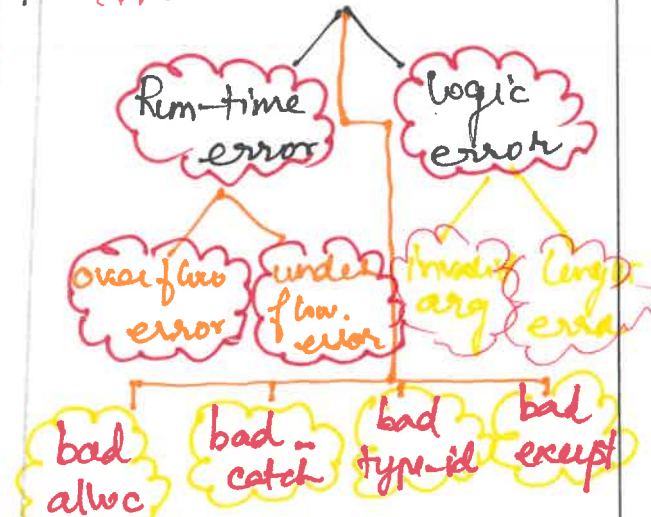 Run-time
error
logic
error
overflow
error
under
flow.
error
Invalid
arg
Length
error
bad
alloc
bad
catch
bad
type-id
bad
except